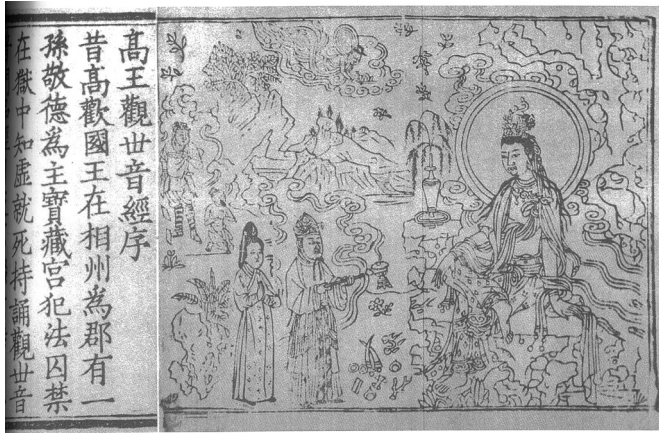 高王觀世音經序
昔高歡國王在相州為郡有一
孫敬德為王寶藏官犯法囚禁
在獄中知虛就死持誦觀世音